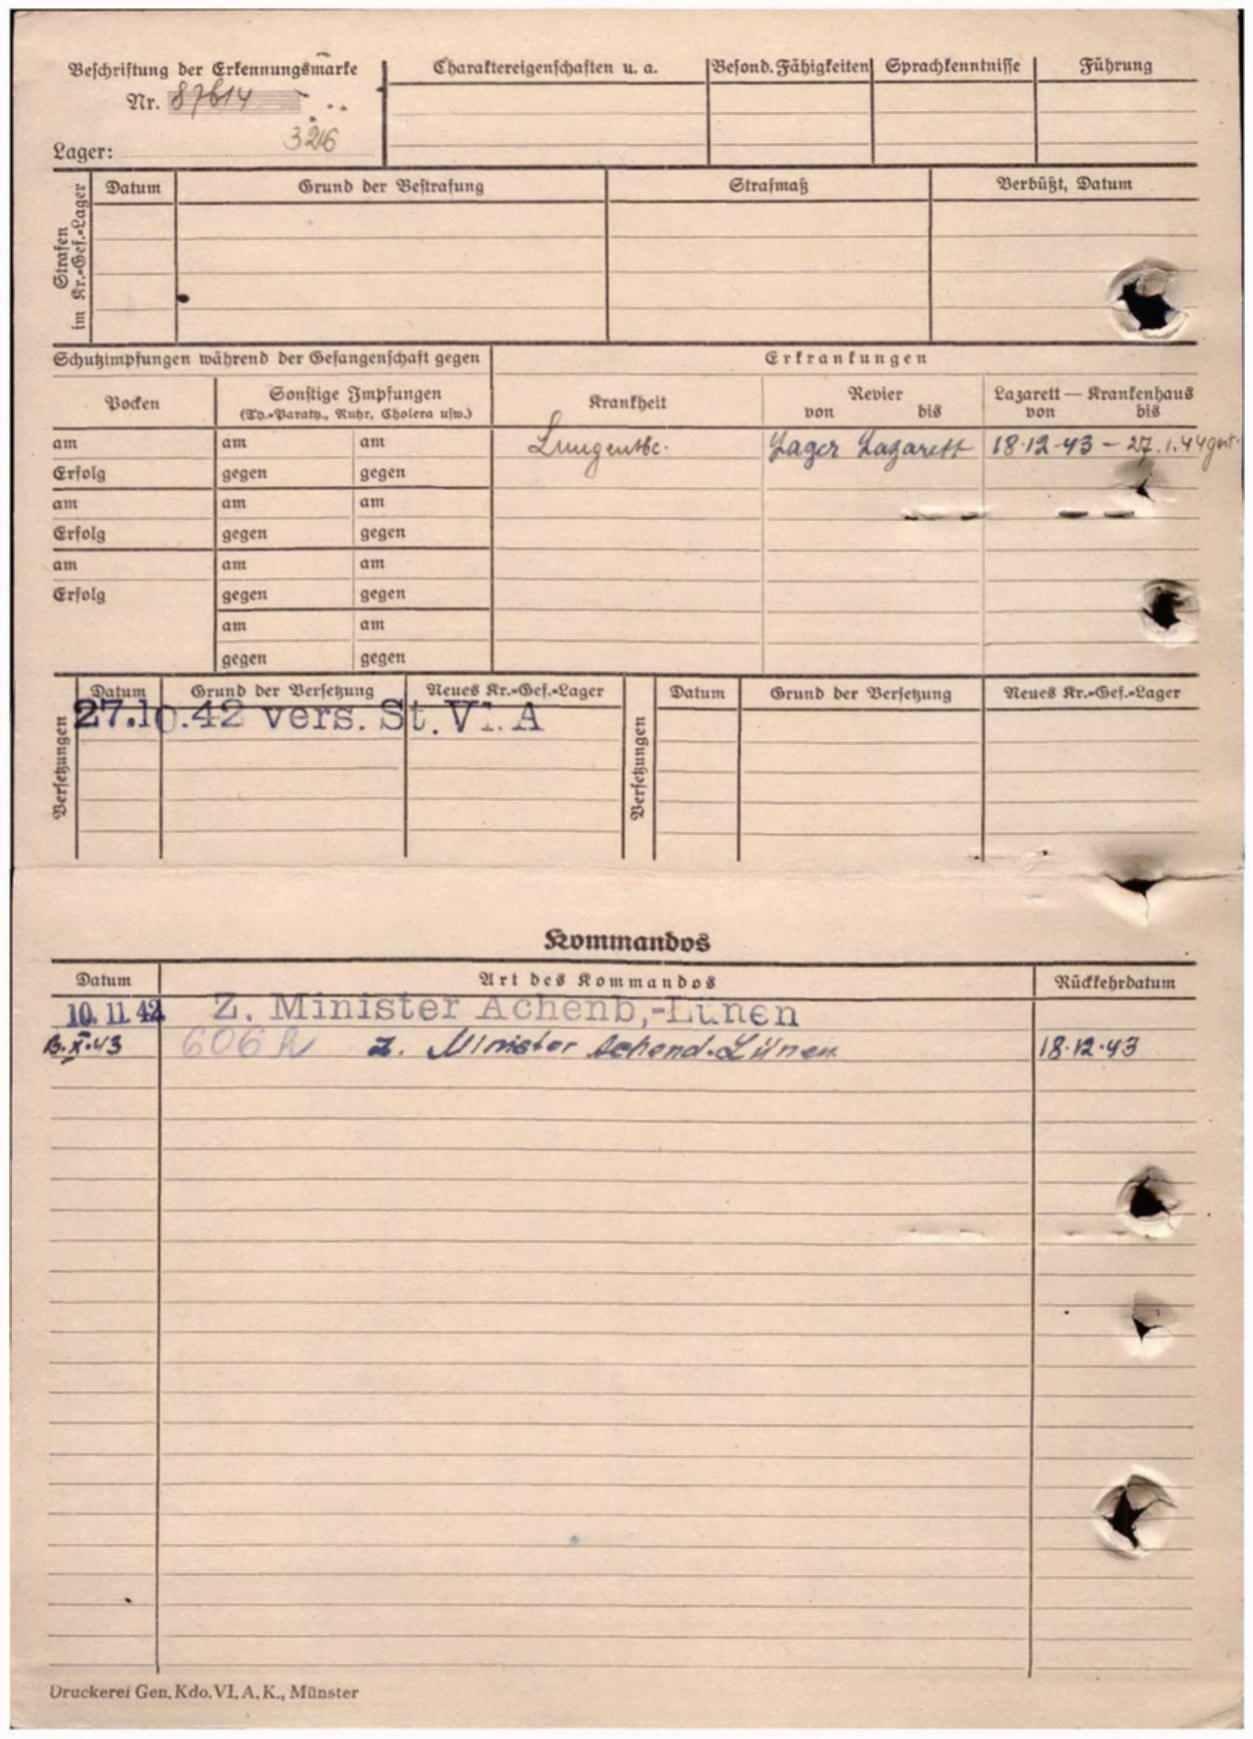 Beschriftung der Erkennungsmarke
Nr. 87614
Lager: 326
Charaktereigenschaften u. a.
Besond. Fähigkeiten
Sprachkenntnisse
Führung
Strafen im Kr.-Gef.-Lager
Datum
Grund der Bestrafung
Strafmaß
Verbüßt, Datum
Schutzimpfungen während der Gefangenschaft gegen
Erkrankungen
Pocken
Sonstige Impfungen
(Ty.-Paraty., Ruhr, Cholera usw.)
Krankheit
Revier
von bis
Lazarett — Krankenhaus
von bis
am am am
Lungentbc. Lager Lazarett 18.12.43 – 27.1.44
Erfolg gegen gegen
am am am
Erfolg gegen gegen
am am am
Erfolg gegen gegen
am am
gegen gegen
Versetzungen
Datum Grund der Versetzung Neues Kr.-Gef.-Lager
27.10.42 vers. St. VI. A
Versetzungen
Datum Grund der Versetzung Neues Kr.-Gef.-Lager
Kommandos
Datum Art des Kommandos Rückkehrdatum
10. 11. 42 Z. Minister Achenb,-Lünen
X.43 606 R Z. Minister Achend.-Lünen 18.12.43
Druckerei Gen. Kdo. VI. A. K., Münster